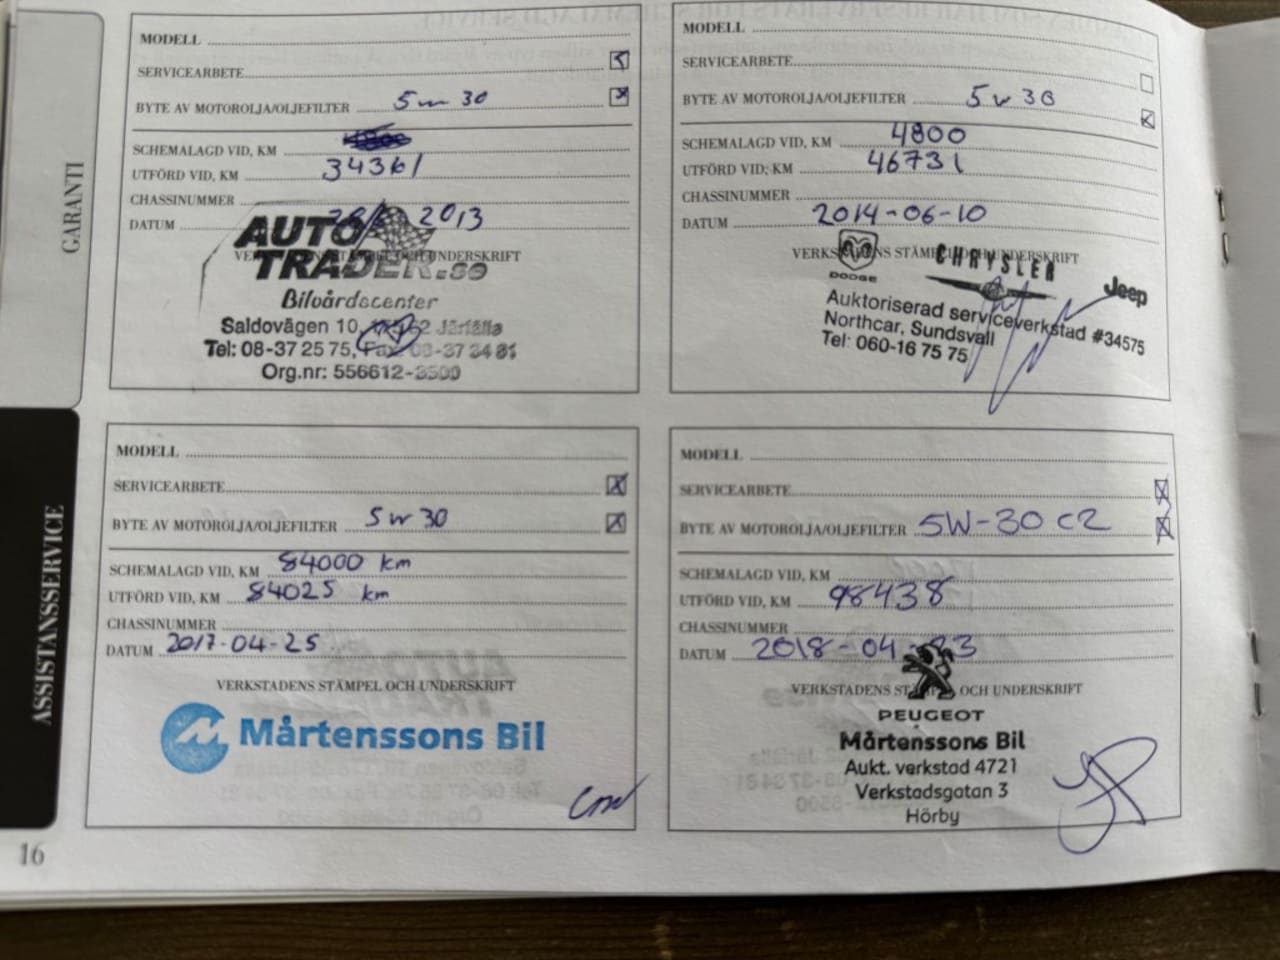 GARANTI
ASSISTANSSERVICE
MODELL
SERVICEARBETE
BYTE AV MOTOROLJA/OLJEFILTER 5w 30
SCHEMALAGD VID, KM
UTFÖRD VID, KM 34361
CHASSINUMMER
DATUM 2013
VERKSTADENS STÄMPEL OCH UNDERSKRIFT
AUTO
TRADER.se
Bilvårdscenter
Saldovägen 10, Järfälla
Tel: 08-37 25 75, Fax: 08-37 34 81
Org.nr: 556612-3500
MODELL
SERVICEARBETE
BYTE AV MOTOROLJA/OLJEFILTER 5w 30
SCHEMALAGD VID, KM 4800
UTFÖRD VID, KM 46731
CHASSINUMMER
DATUM 2014-06-10
VERKSTADENS STÄMPEL OCH UNDERSKRIFT
DODGE
CHRYSLER
Jeep
Auktoriserad serviceverkstad #34575
Northcar, Sundsvall
Tel: 060-16 75 75
MODELL
SERVICEARBETE
BYTE AV MOTOROLJA/OLJEFILTER 5w 30
SCHEMALAGD VID, KM 84000 km
UTFÖRD VID, KM 84025 km
CHASSINUMMER
DATUM 2017-04-25
VERKSTADENS STÄMPEL OCH UNDERSKRIFT
Mårtenssons Bil
MODELL
SERVICEARBETE
BYTE AV MOTOROLJA/OLJEFILTER 5W-30 C2
SCHEMALAGD VID, KM
UTFÖRD VID, KM 98438
CHASSINUMMER
DATUM 2018-04-
VERKSTADENS STÄMPEL OCH UNDERSKRIFT
PEUGEOT
Mårtenssons Bil
Aukt. verkstad 4721
Verkstadsgatan 3
Hörby
16